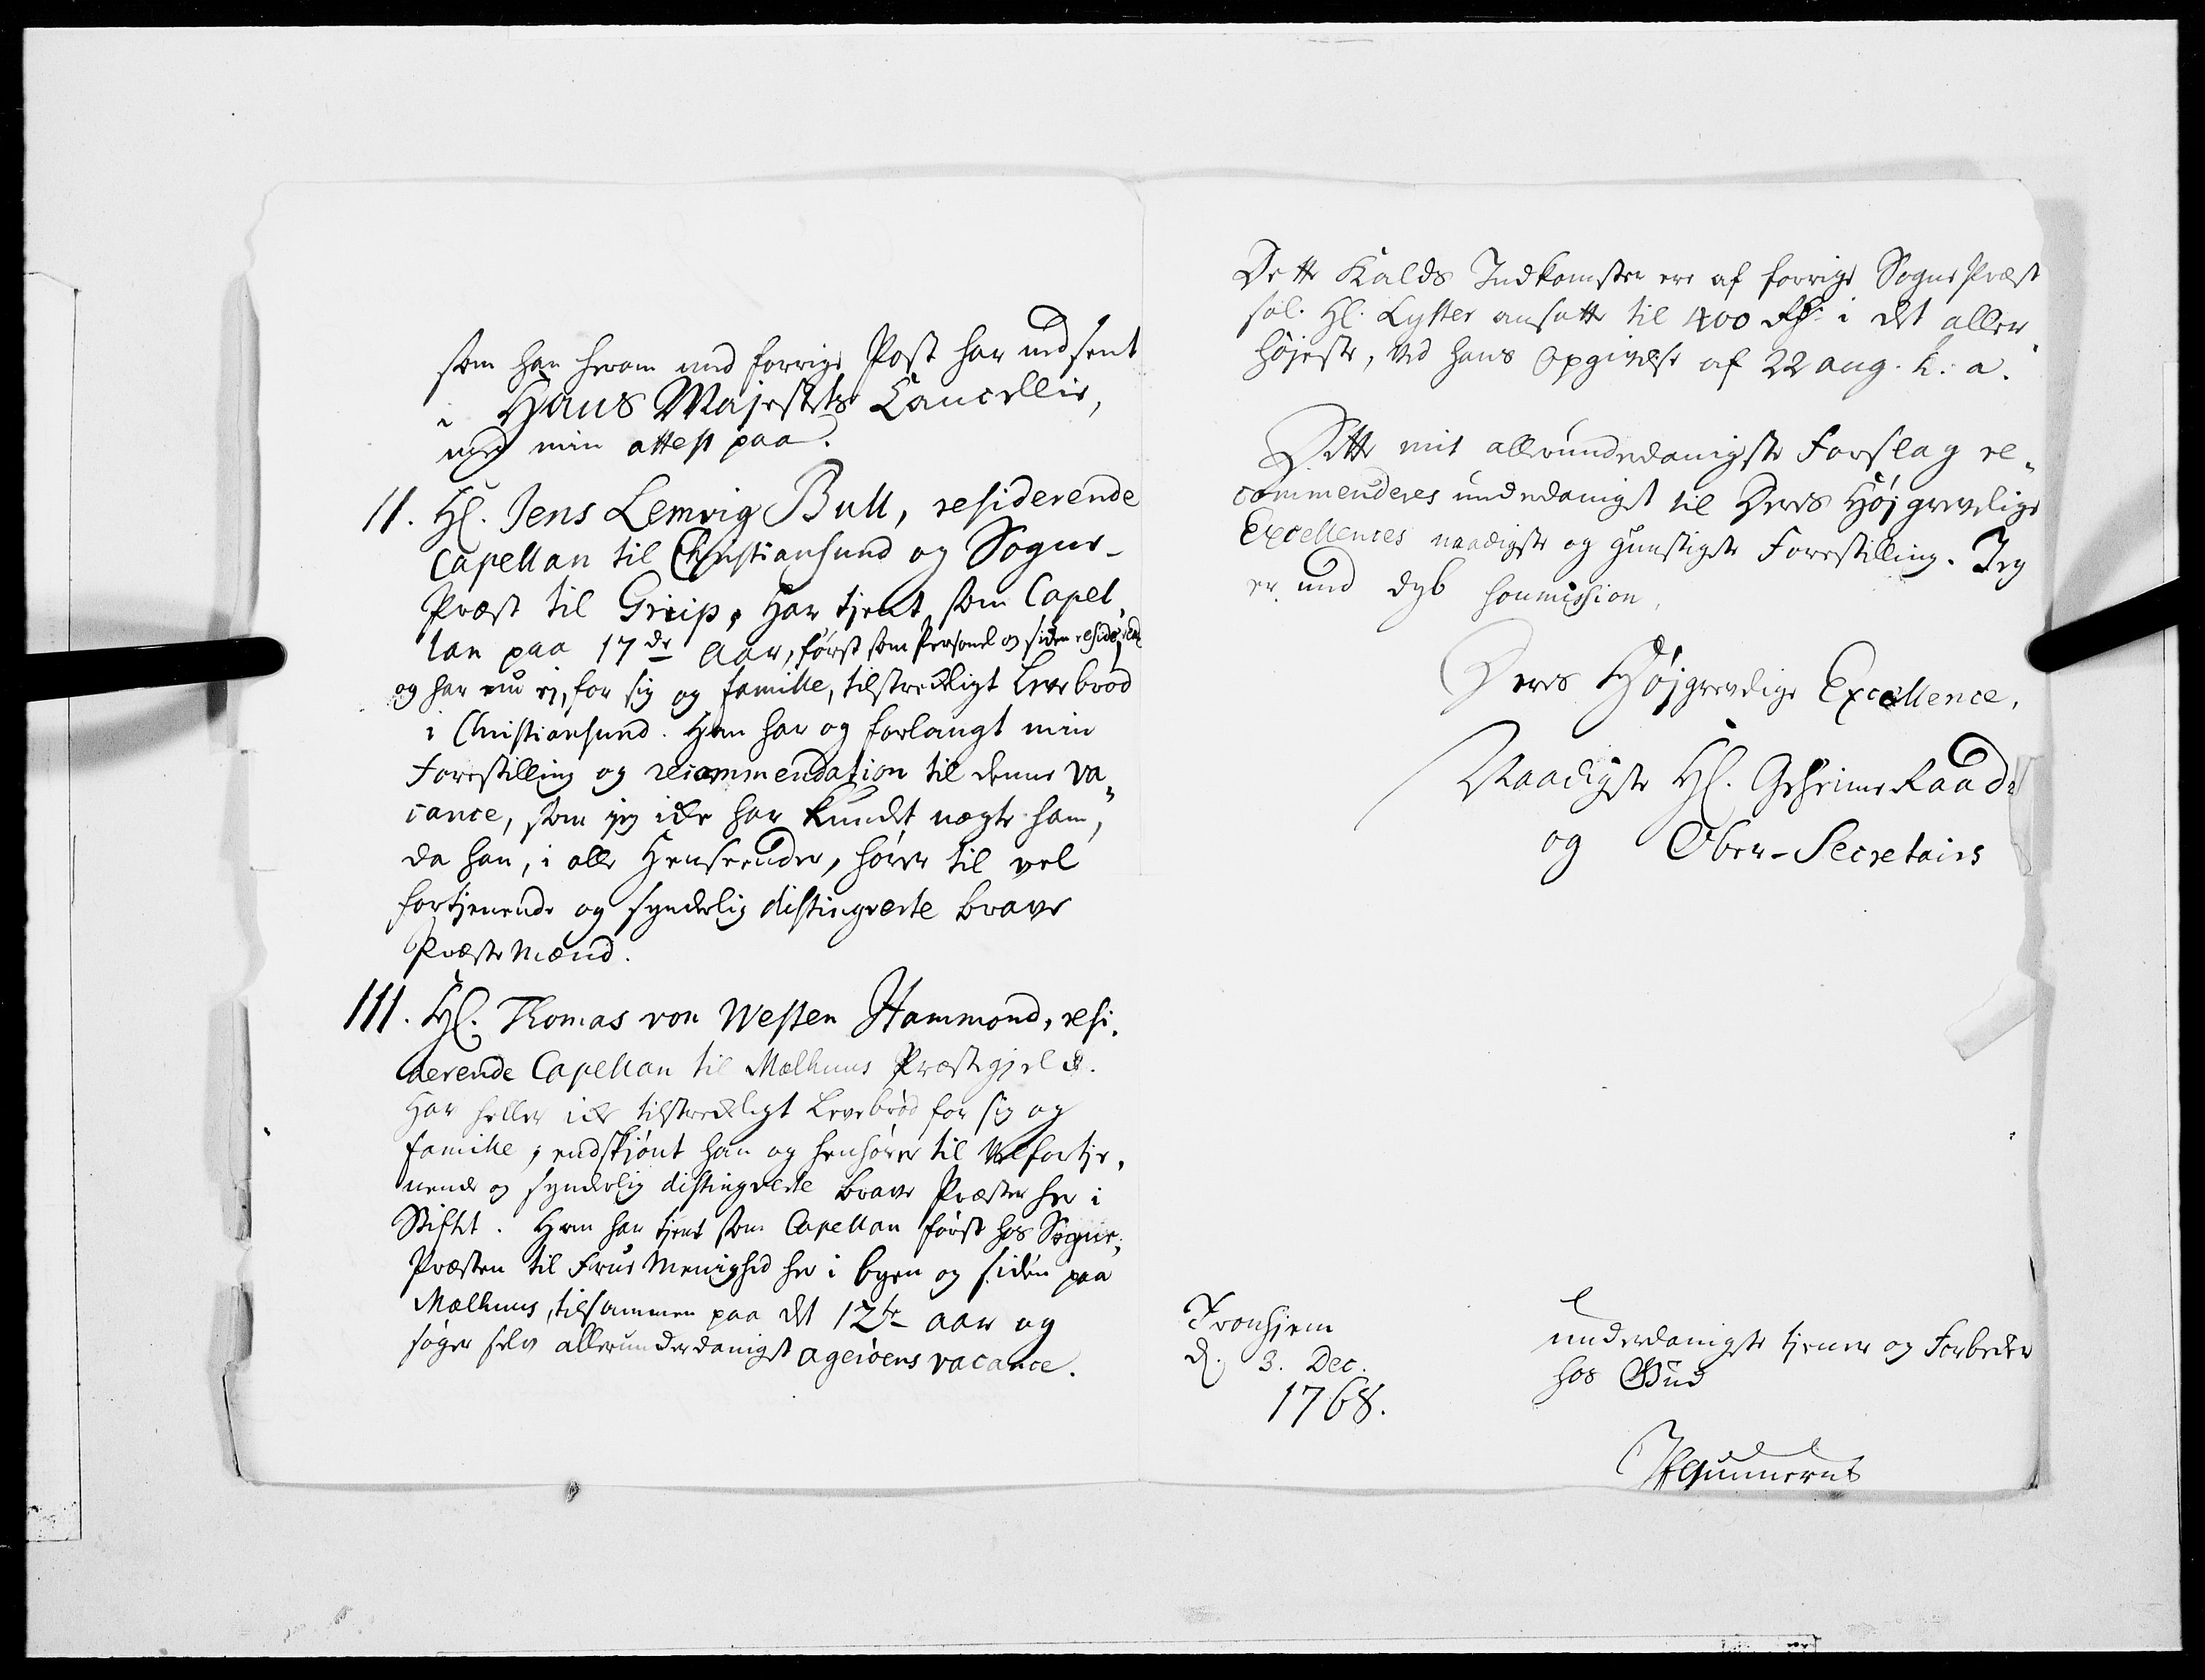 som han herom med forrige Post har indsent
i Hans Majestets Cancellie,
med min attest paa.
II. Hl. Jens Lemvig Bull, residerende
Capellan til Christiansund og Sogne-
Præst til Griip, har tjent som Capel„
lan paa 17de Aar, først som Personel og siden residerende
og har nu ej, for sig og famille, tilstrekkligt Levebrød
i Christiansund. Han har og forlangt min
Forestilling og recommendation til denne va„
cance, som jeg ikke har kundet nægte ham,
da han, i alle Henseender, hører til vel
fortjenende og synderlig distingverte brave
Præstemænd.
III. Hl. Thomas von Westen Hammond, resi„
derende Capellan til Mælhuus Præstegjeld.
Har heller ikke tilstrekkligt Levebrød for sig og
famille, endskjønt han og henhører til Velfortje„
nende og synderlig distingverte brave Præster her i
Stiftet. Han har tjent som Capellan først hos Sogne„
Præsten til Frue Menighed her i byen og siden paa
Mælhuus, tilsammen paa det 12te aar og
søger selv allerunderdanigst agerøens vacance.
Dette Kalds Indkomster ere af forrige Sogne Præst
sal. Hl. Lyster ansatte til 400 Rd. i det aller„
højeste, ved hans Opgivelse af 22 aug. h. a.
Dette mit allerunderdanigste Forslag re„
commenderes underdanigst til Deres Højgrevelige
Excellences naadigste og gunstigste Forestilling. Jeg
er med dyb soumission,
Deres Højgrevelige Excellence,
Naadigste Hl. Geheime Raads
og Ober-Secretairs
Tronhjem
d. 3. Dec.
1768.
underdanigste tjener og Forbeder
hos Gud
JEGunnerus